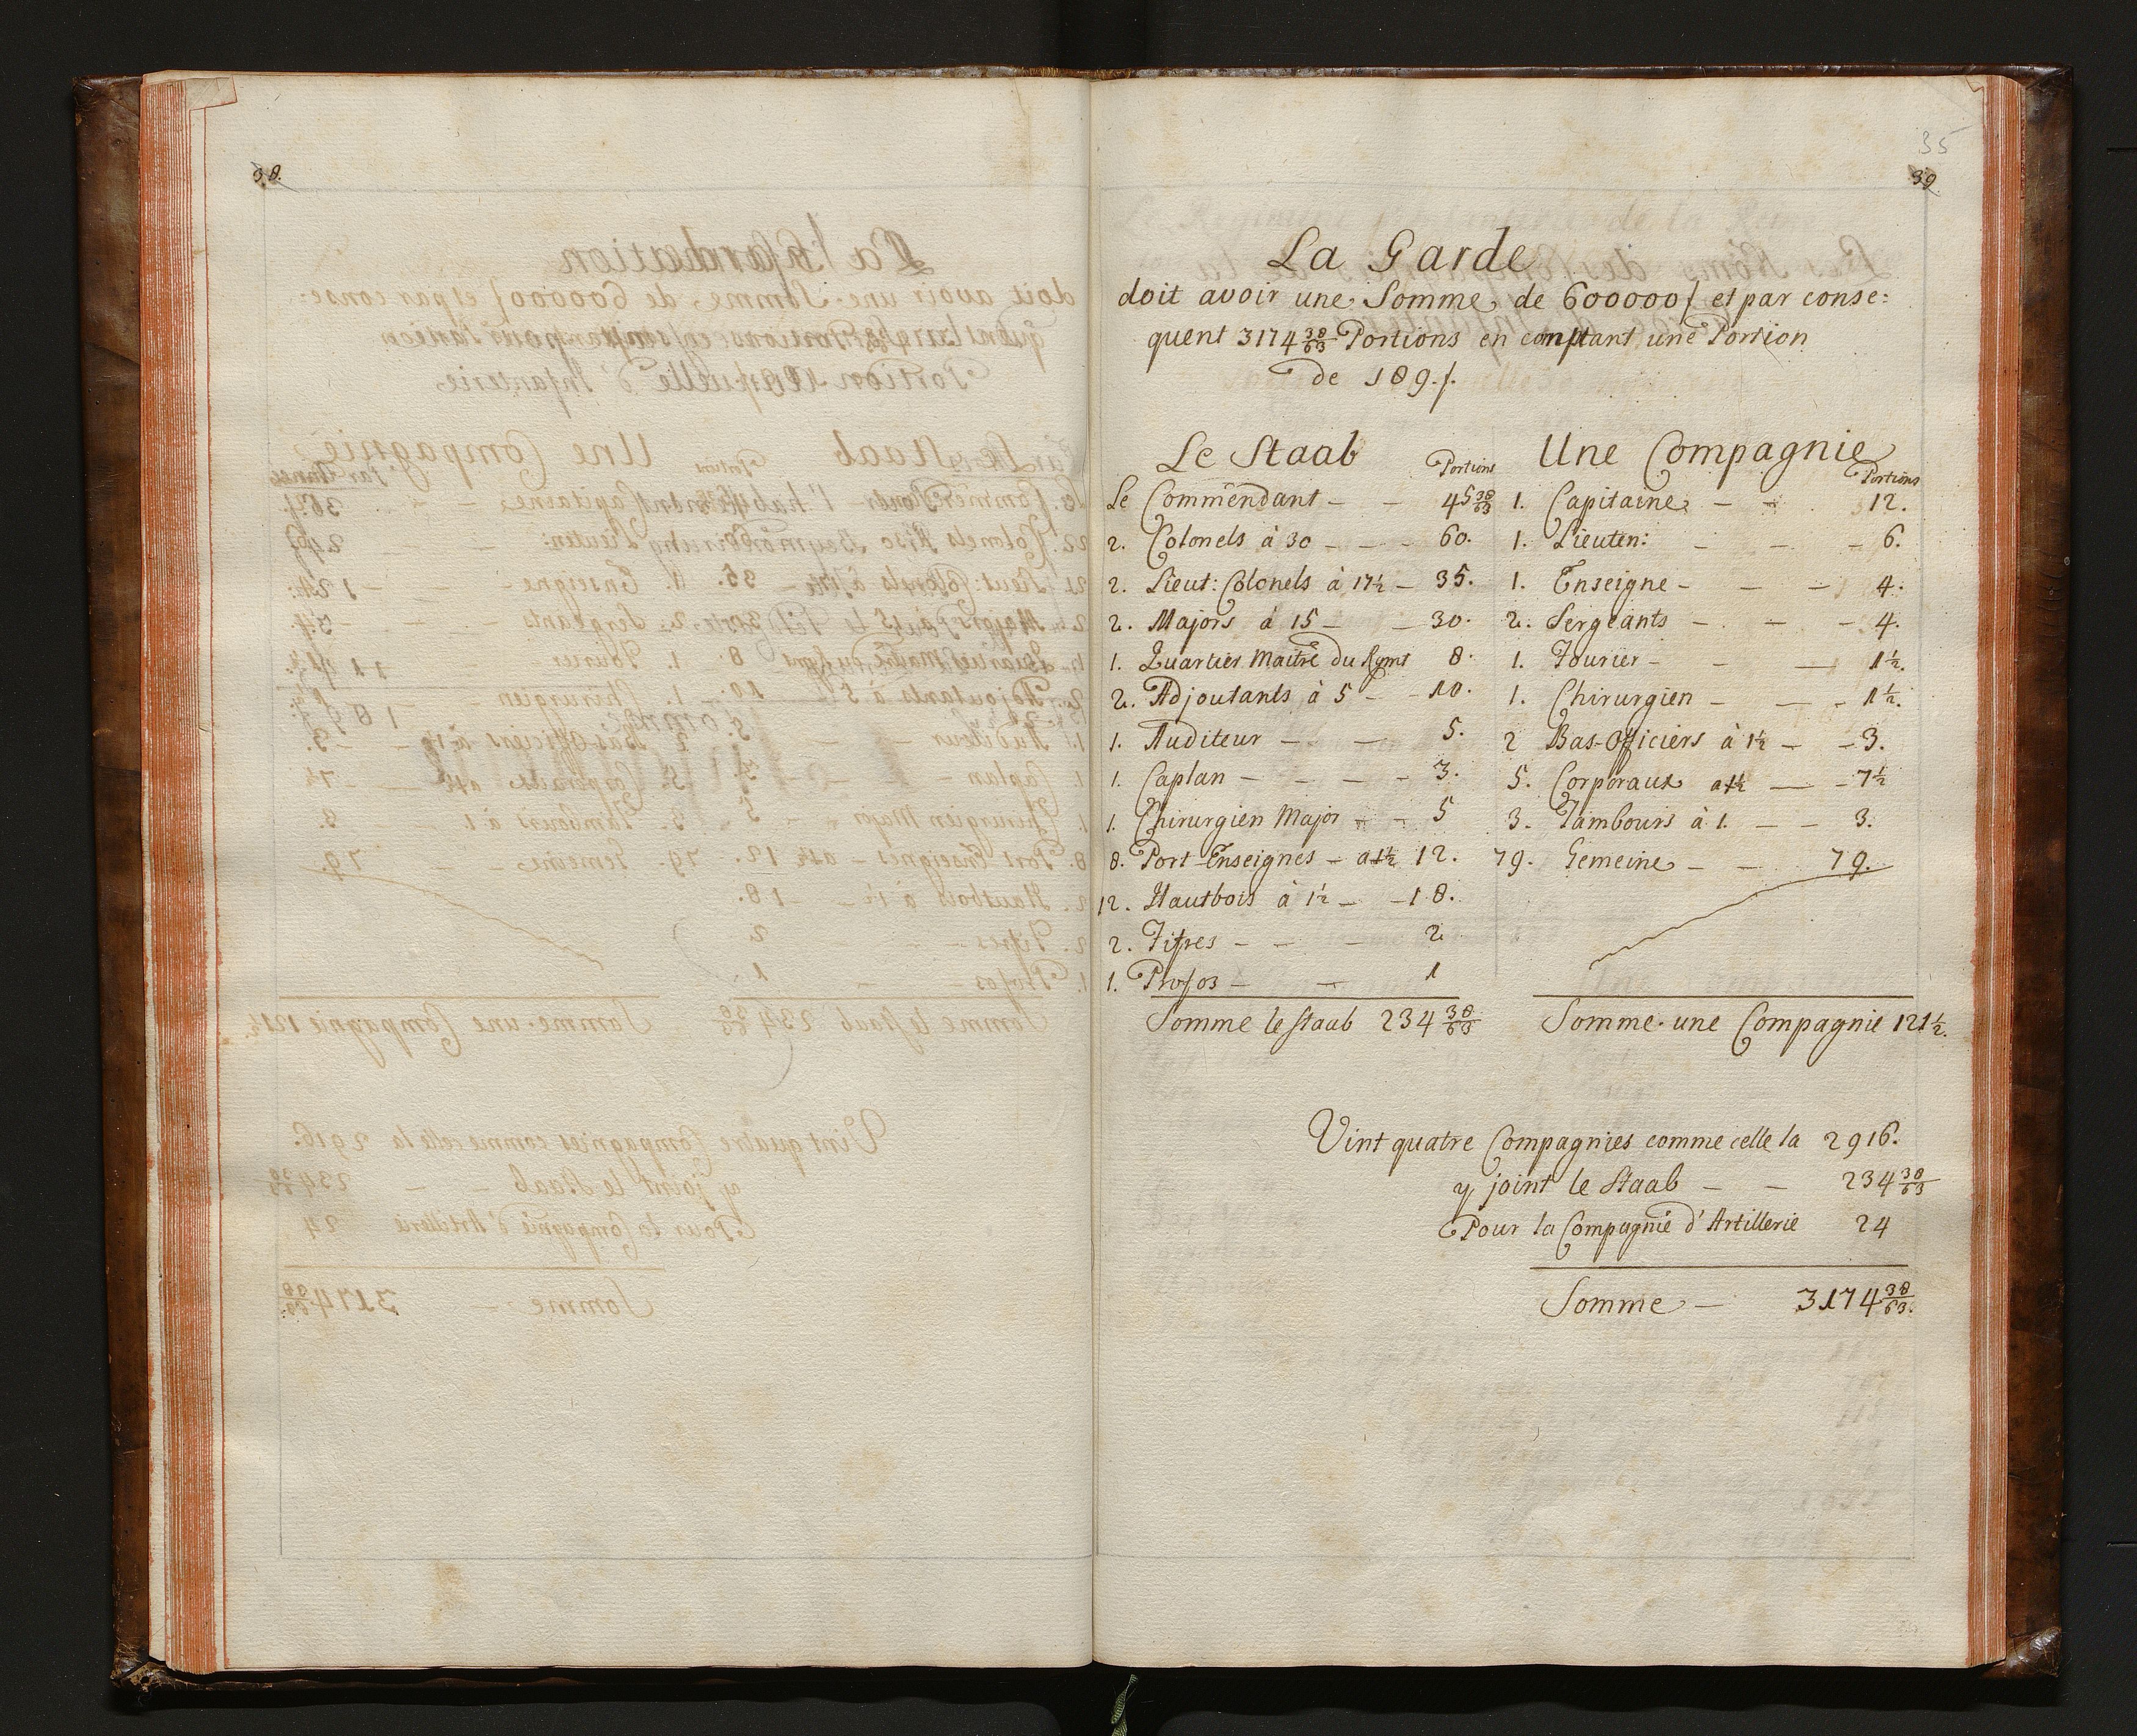 38.
35
39
La Garde
doit avoir une Somme de 600000 f et par conse:
quent 3174 38/63 Portions en comptant une Portion
de 189. f.
Le Staab Portions
Le Commendant - - 45 38/63
2. Colonels à 30 - - - 60.
2. Lieut: Colonels à 17½ - 35.
2. Majors à 15 - - 30.
1. Quartier Maitre du Rgmt 8.
2. Adjoutants à 5 - - 10.
1. Auditeur - - 5.
1. Caplan - - - - 3.
1. Chirurgien Major - - 5
8. Port-Enseignes - a 1½ 12.
12. Hautbois à 1½ - - 18.
2. Fifres - - - 2
1. Profos - - 1
Somme le staab 234 38/63
Une Compagnie Portions
1. Capitaine - - 12.
1. Lieuten: - - - 6.
1. Enseigne - - - 4.
2. Sergeants - - - 4.
1. Fourier - - - 1½.
1. Chirurgien - - - 1½.
2 Bas-Officiers à 1½ - - 3.
5. Corporaux a 1½ - - 7½
3. Tambours à 1. - - 3.
79. Gemeine - - 79.
Somme une Compagnie 121½.
Vint quatre Compagnies comme celle la 2916.
y joint le Staab - - 234 38/63
Pour la Compagnie d'Artillerie 24
Somme - 3174 38/63.